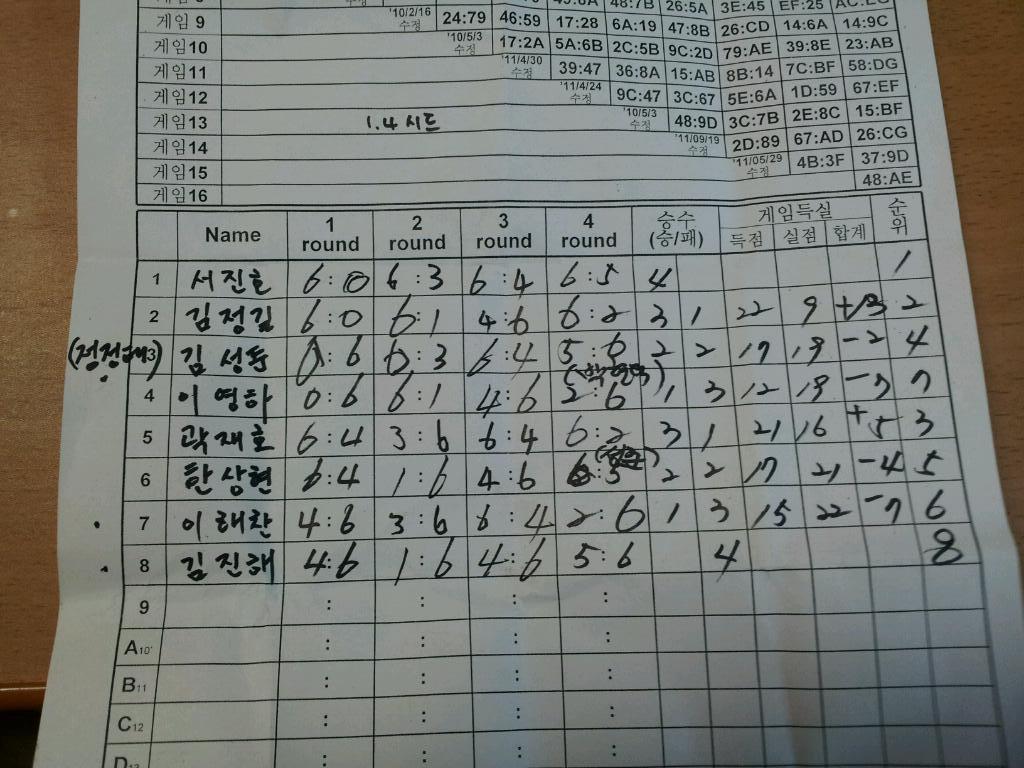 게임 9 '10/2/16 수정 24:79 46:59 17:28 6A:19 47:8B 26:CD 14:6A 14:9C
게임10 '10/5/3 수정 17:2A 5A:6B 2C:5B 9C:2D 79:AE 39:8E 23:AB
게임11 '11/4/30 수정 39:47 36:8A 15:AB 8B:14 7C:BF 58:DG
게임12 '11/4/24 수정 9C:47 3C:67 5E:6A 1D:59 67:EF
게임13 1.4 시드 '10/5/3 수정 48:9D 3C:7B 2E:8C 15:BF
게임14 '11/09/19 수정 2D:89 67:AD 26:CG
게임15 '11/05/29 수정 4B:3F 37:9D
게임16 48:AE
Name 1 round 2 round 3 round 4 round 승수 (승/패) 게임득실 득점 실점 합계 순위
1 서진호 6:0 6:3 6:4 6:5 4 1
2 김정길 6:0 6:1 4:6 6:2 3 1 22 9 +13 2
3 김성동 0:6 6:3 6:4 5:6 2 2 17 19 -2 4
4 이영하 0:6 6:1 4:6 2:6 1 3 12 19 -7 7
5 곽재호 6:4 3:6 6:4 6:2 3 1 21 16 +5 3
6 한상현 6:4 1:6 4:6 6:5 2 2 17 21 -4 5
7 이해찬 4:6 3:6 6:4 2:6 1 3 15 22 -7 6
8 김진해 4:6 1:6 4:6 5:6 4 8
9 : : : :
A10 : : : :
B11 : : : :
C12 : : : :
D13